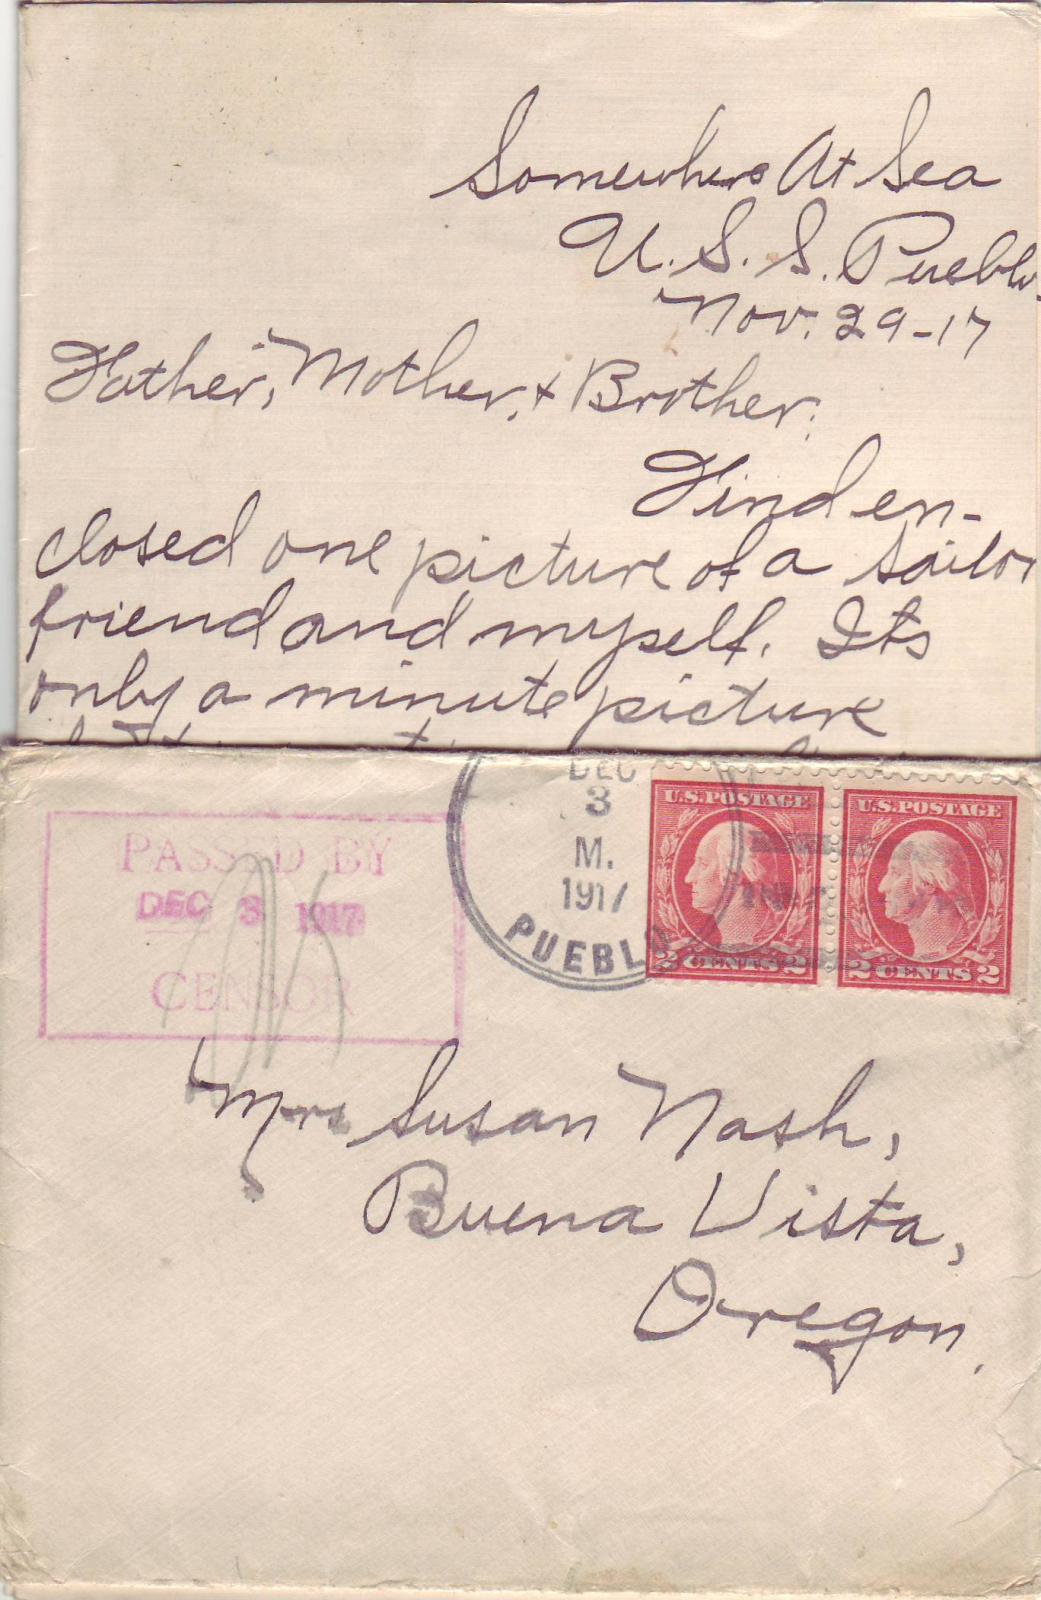 Somewhere At Sea
U.S.S. Pueblo
Nov. 29-17
Father, Mother, & Brother:
Find en-
closed one picture of a sailor
friend and myself. Its
only a minute picture
DEC
3
M.
1917
PUEBLO
U.S. POSTAGE
2 CENTS 2
U.S. POSTAGE
2 CENTS 2
PASSED BY
DEC 3 1917
CENSOR
Mrs Susan Nash,
Buena Vista,
Oregon.